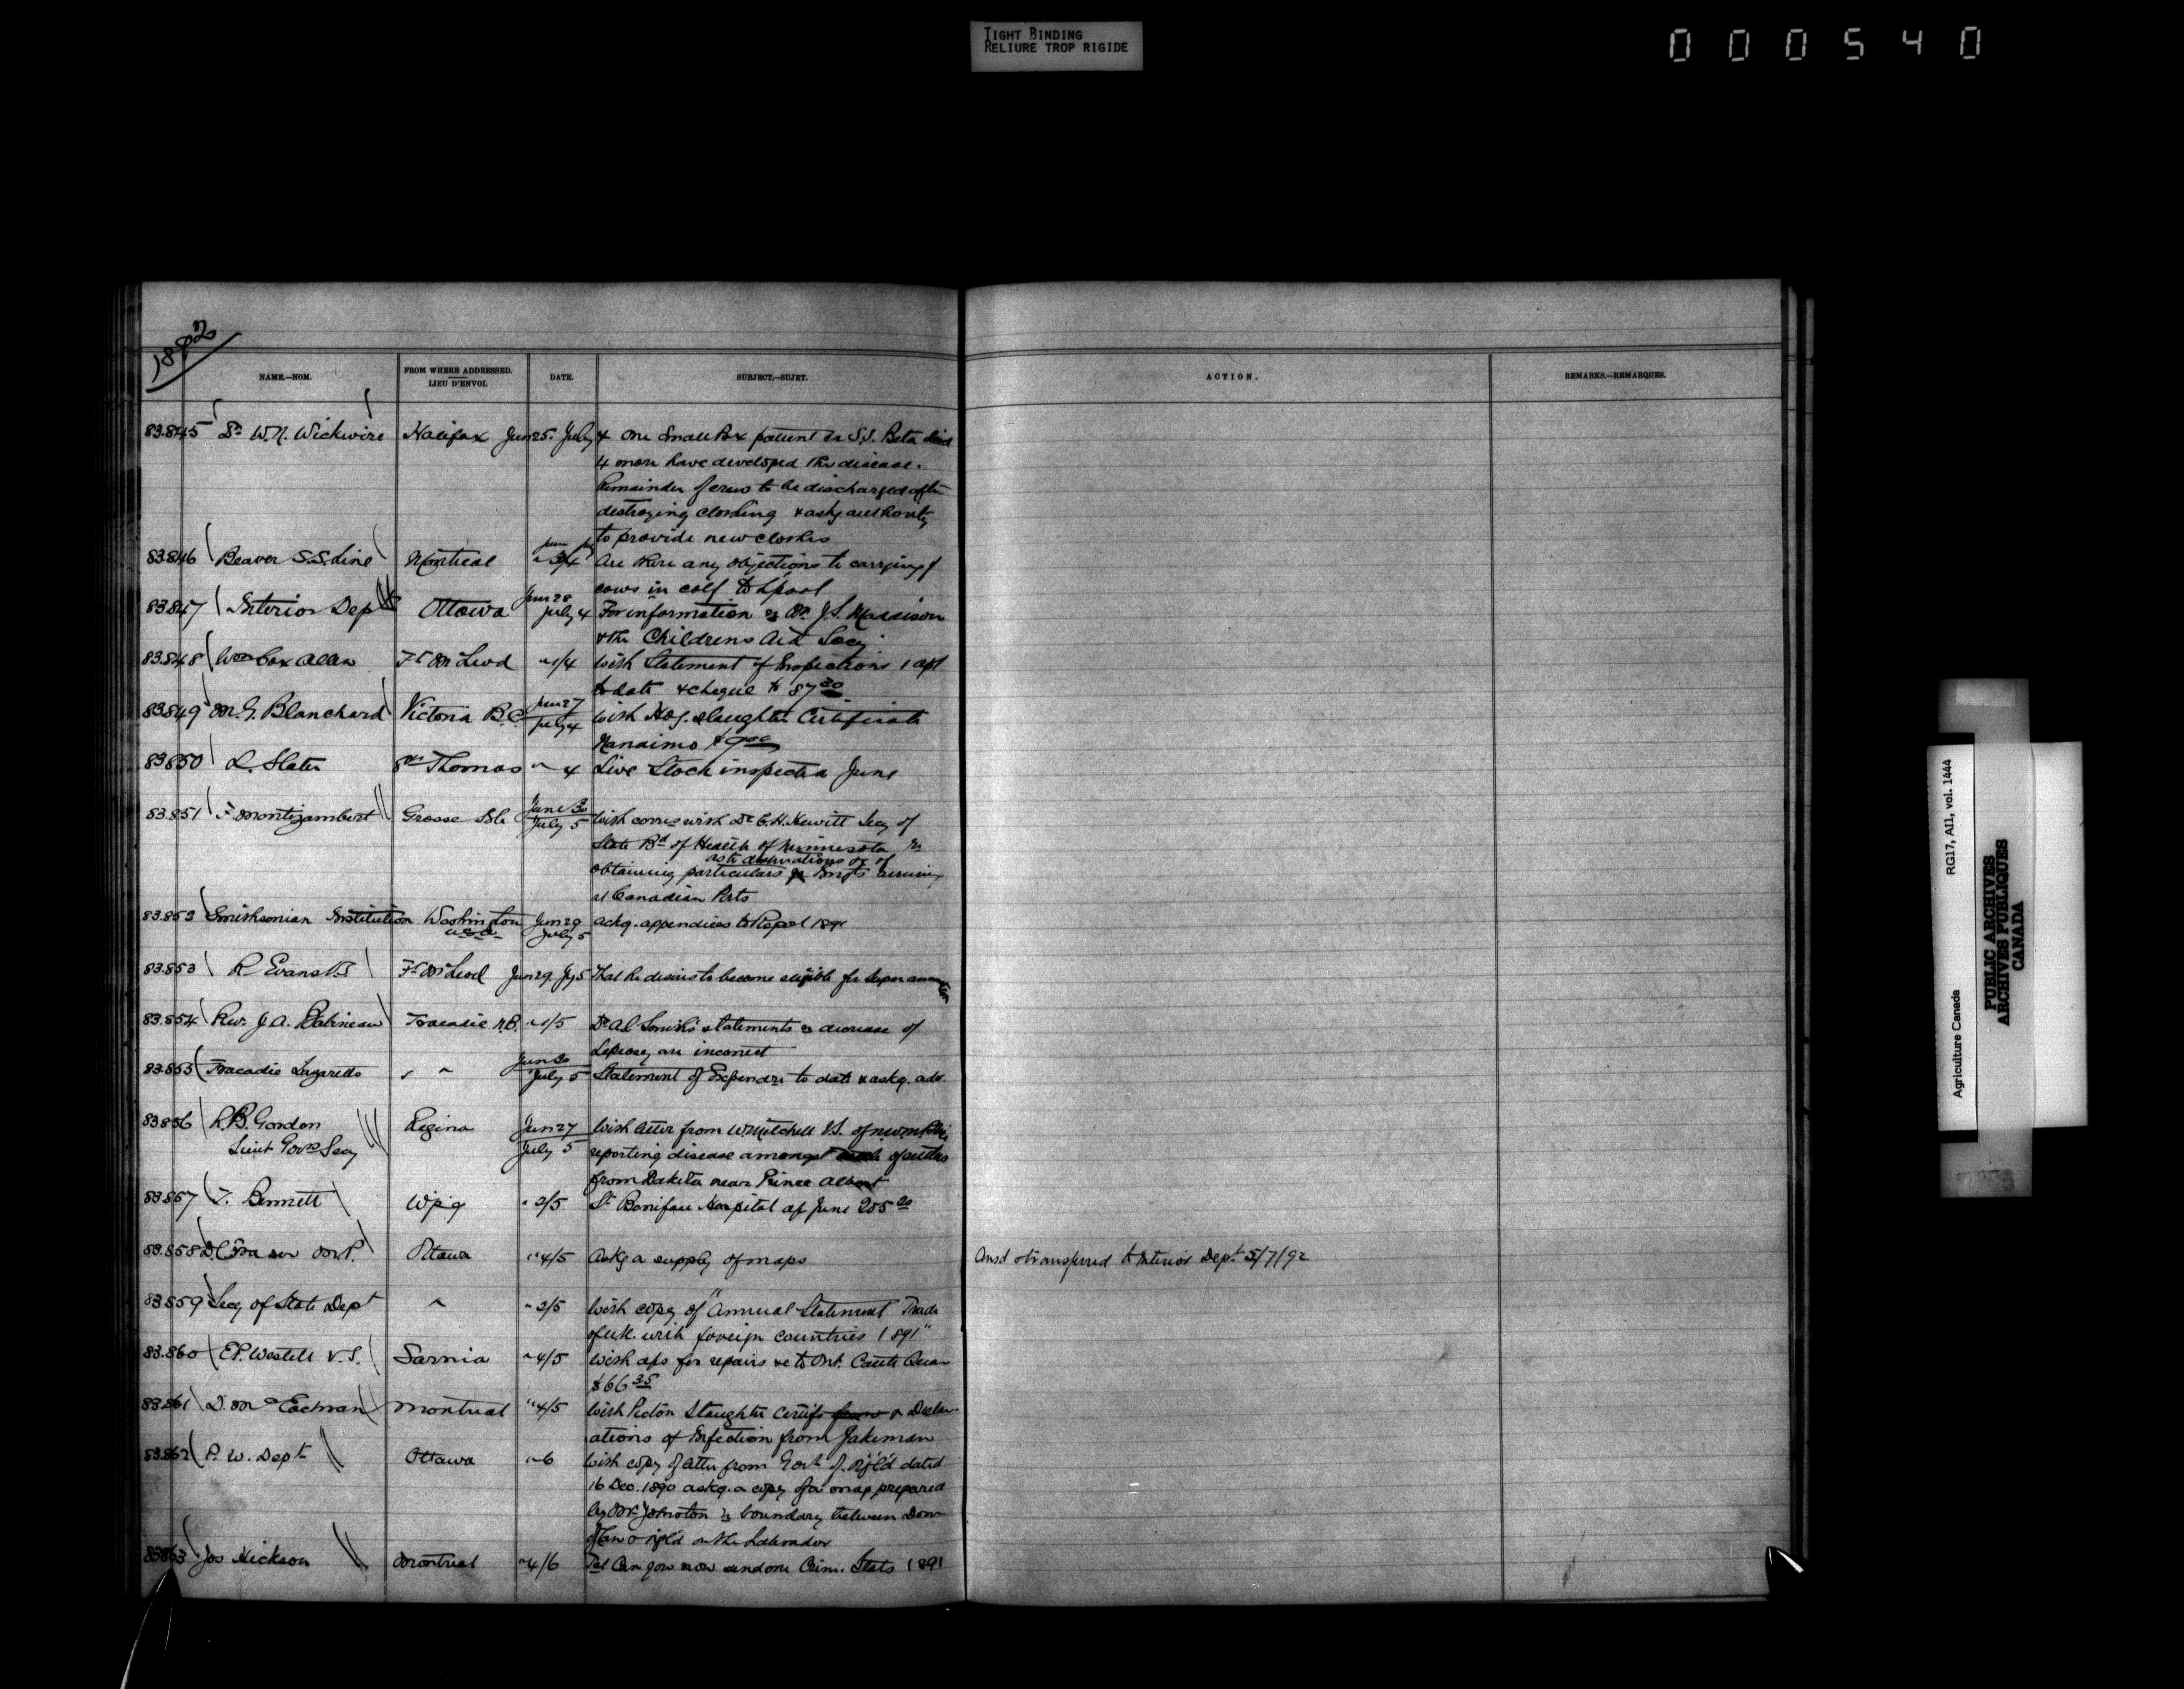 TIGHT BINDING
RELIURE TROP RIGIDE
000540
1892
NAME.—NOM.
FROM WHERE ADDRESSED.
LIEU D'ENVOI.
DATE.
SUBJECT.—SUJET.
ACTION.
REMARKS.—REMARQUES.
83.845 Dr W.N. Wickwire Halifax Jun 25. July 4 One Small Pox patient ex S.S. Beta died
4 more have developed the disease.
Remainder of crew to be discharged after
destroying clothing & askg authority
to provide new clothes
83.846 Beaver S.S. Line Montreal Are there any objections to carrying
cows in calf to Lpool
83.847 Interior Dept Ottawa Jun 28 July 4 For information re Mr. J.S. Maddison
& the Childrens Aid Socy
83.848 Wm Cox Allen Ft McLeod " 1/4 With Statement of Inspections 1 apl
to date & cheque $ 87 30
83.849 M.G. Blanchard Victoria B.C. Jun 27 July 4 With Hog slaughter Certificate
Nanaimo
83.850 L. Slater St Thomas " 4 Live Stock inspected June
83.851 F. Montizambert Grosse Isle June 30 July 5 With corres with Dr C.H. Hewitt Secy of
State Bd of Health of Minnesota re
as to destinations &c of
obtaining particulars Imgts arriving
at Canadian Ports
83.852 Smithsonian Institution Washington Jun 29 July 5 ackg. appendices to Report 1891
U.S.A.
83.853 R Evans V.S Ft McLeod Jun 29 Jy 5 That he desires to become eligible for Superannuation
83.854 Rev. J.A. Babineau Tracadie N.B. " 1/5 Dr A C Smith's statements re decrease of
Leprosy are incorrect
83.855 Tracadie Lazaretto " " Jun 30 July 5 Statement of Expendre to date & askg. adv.
83.856 R.B. Gordon Regina Jun 27 July 5 With letter from W. Mitchell V.S. of N.W.M. Police
Lieut Govrs Secy reporting disease amongst of settlers
from Dakota near Prince Albert
83.857 T. Bennett Wpg " 2/5 St Boniface Hospital a/c June 205 20
83.858 D.C. Fraser M.P. Ottawa " 4/5 Askg a supply of maps Ansd & transferred to Interior Dept 5/7/92
83.859 Secy of State Dept " " 2/5 With copy of "Annual Statement Trade
of U.K. with foreign countries 1891"
83.860 E.P. Westell V.S. Sarnia " 4/5 With a/cs for repairs &c to Ont. Cattle Quar
$66 35
83.861 D. McEachran Montreal " 4/5 With Picton Slaughter Certifs & Declar-
ations of Infection from Jakeman
83.862 P.W. Dept Ottawa " 6 With copy of letter from Govt of Nfld dated
16 Dec. 1890 askg. a copy of a map prepared
by Mr Johnston re boundary between Dom
of Can & Nfld on the Labrador
83863 Jos Hickson Montreal " 4/6 Tel Can you now send me Crim. Stats 1891
RG17, AII, vol. 1444
Agriculture Canada
PUBLIC ARCHIVES
ARCHIVES PUBLIQUES
CANADA